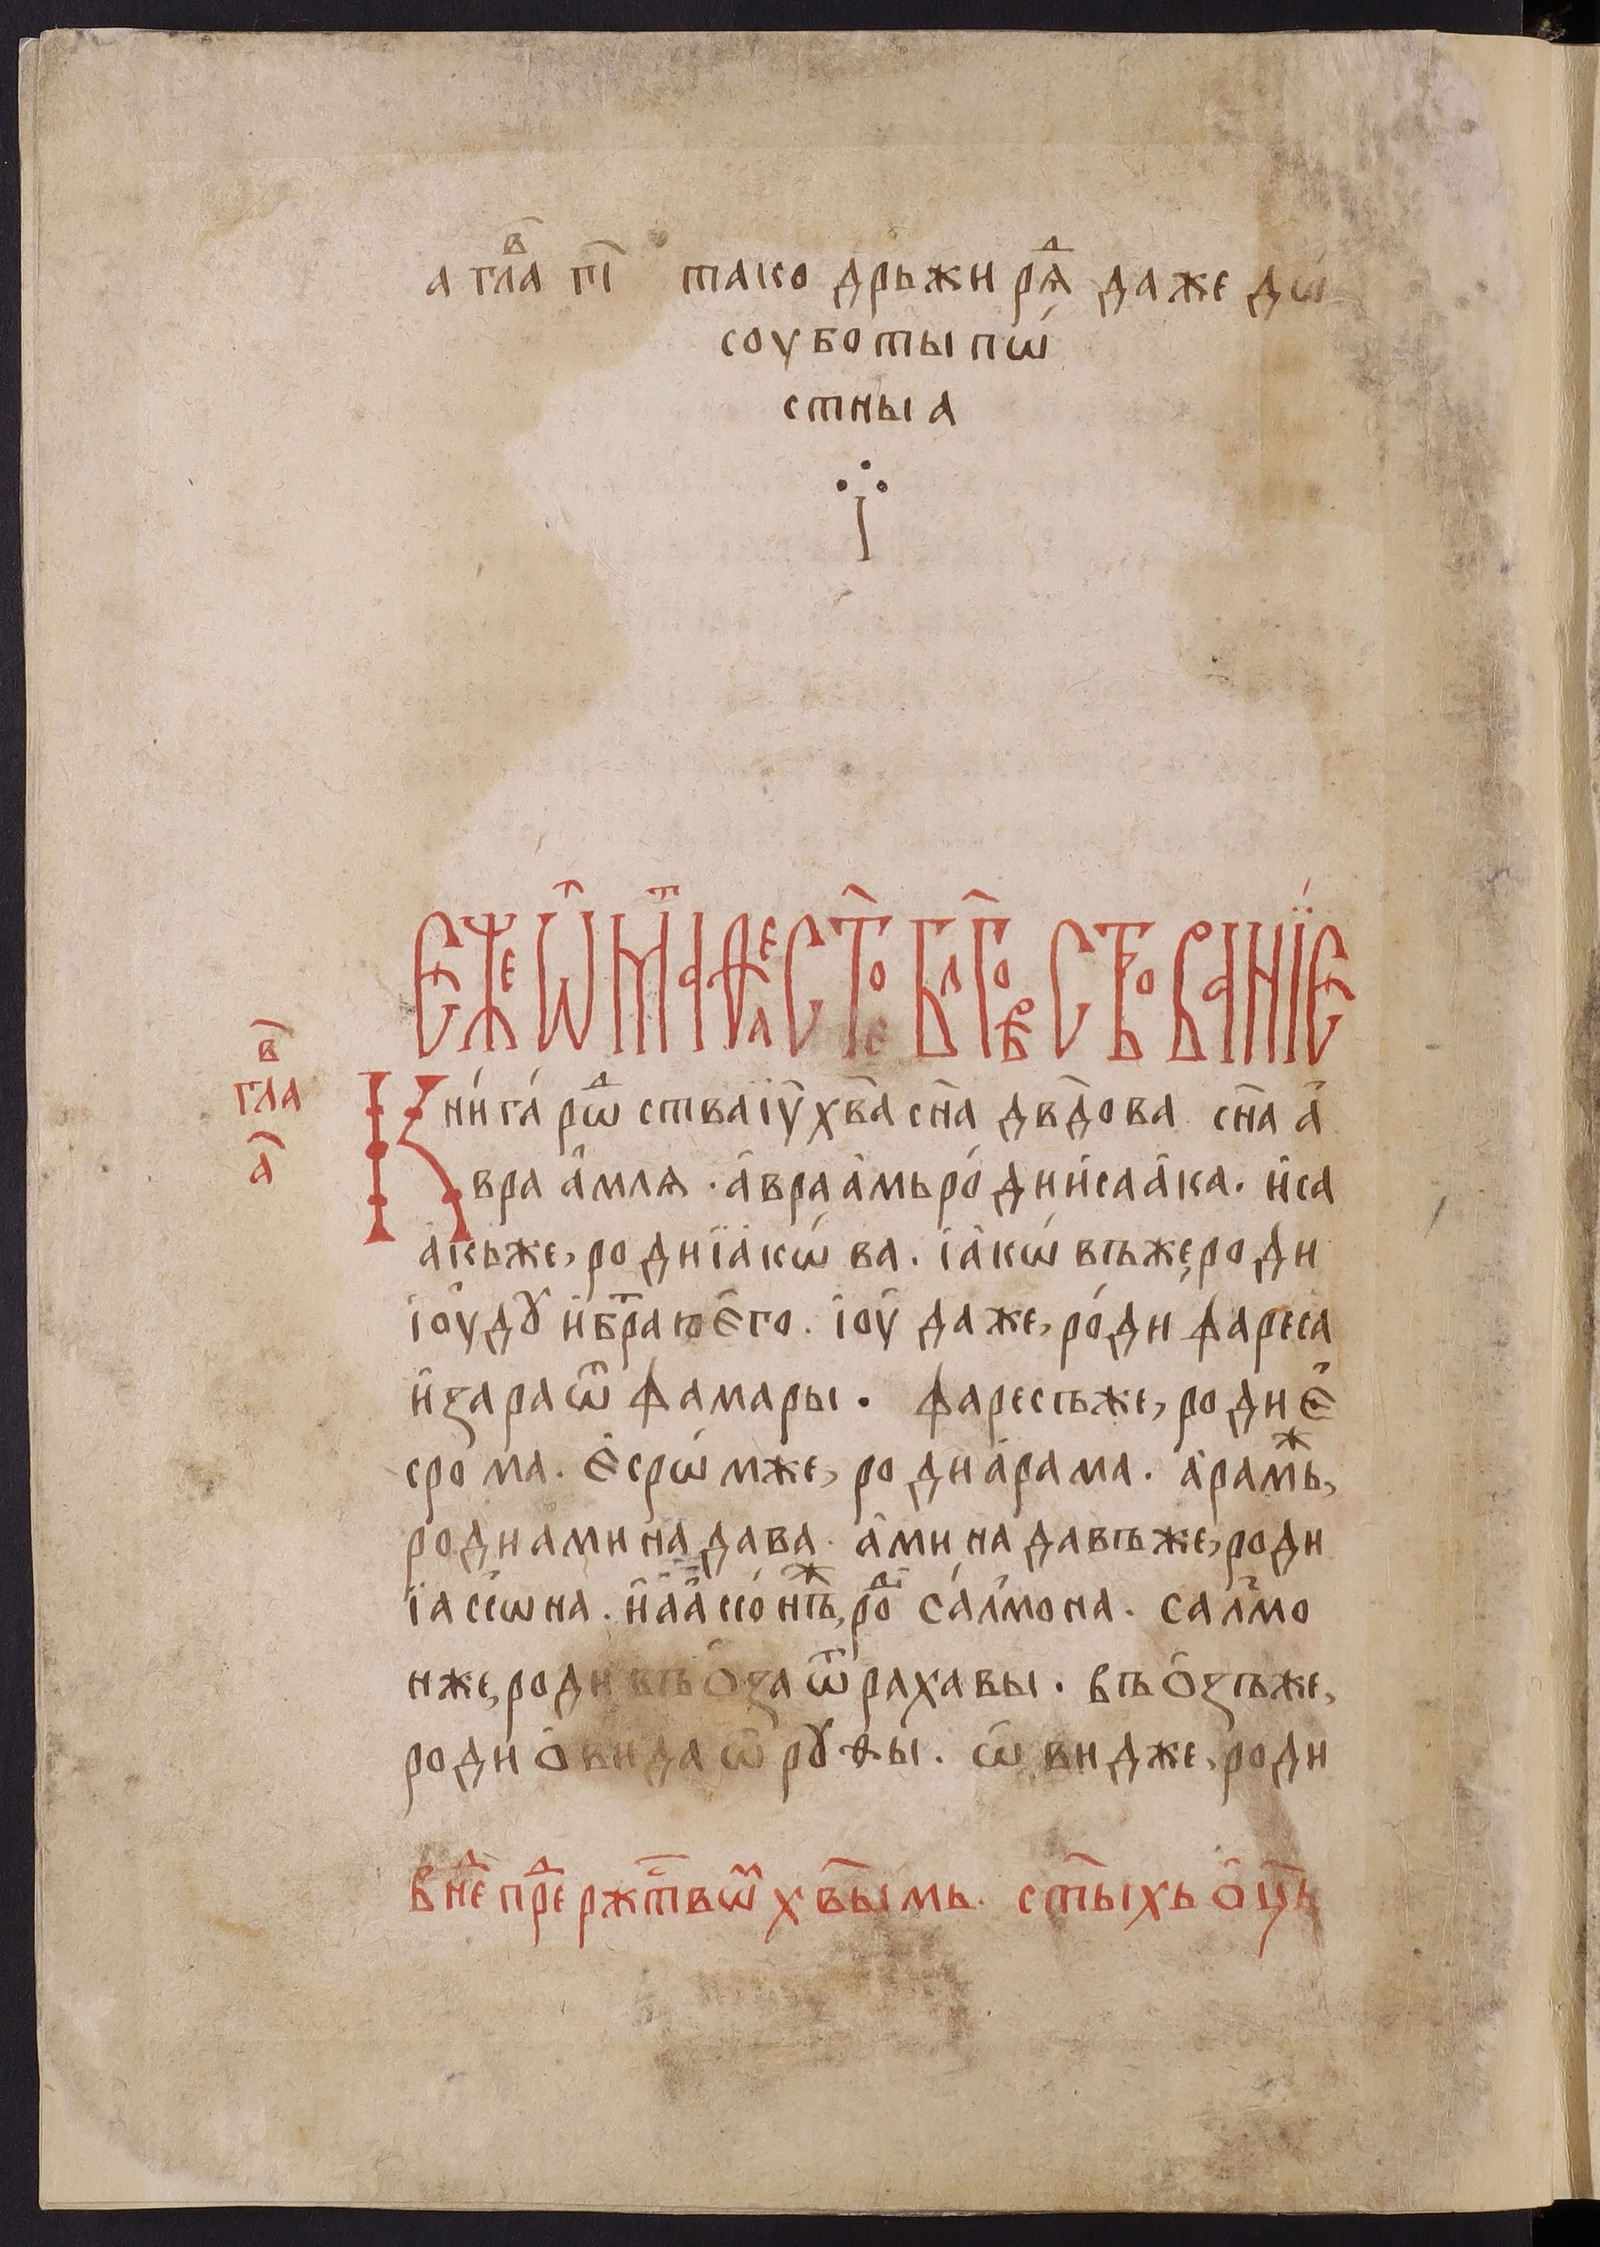 а глаⷡ҇ гі҃ тако дрьжи рѧⷣ даже дѡ
соуботы пѡ
стныа
Еже ѿ матѳеа ст҃ое бл҃говѣствованїе
в҃
гла
а҃
Кни́га́ рѡⷣства і҆у҃ хв҃а сн҃а дв҃дова сн҃а а҆
враа҆млѧ · а҆враа҆мь ро́ди и҆саа҆ка · и҆са
а҆кьже, роди їа҆кѡ́ва . іа҆кѡ́въже, роди
і҆оу҆дꙋ и҆ бра́тⷮю є҆го . і҆оу҆даже, ро́ди фареса
и҆ зара ѿ фамары . фаресъже, роди є҆
срома . є҆срѡ́мже, роди а҆рама . а҆рамьⷤ,
роди аминадава · а҆ми́надавъже, роди
їассѡна . н҆аа҆ссо́нъⷤ, роⷣ са́лмона . салмо
нже, роди въо҆за ѿ рахавы . въо҆зъже,
роди о҆вида ѿ рꙋѳы . ѡ҆видже, роди
в неⷣ преⷣ ржⷭ҇твѡⷨ хв҃ымь · ст҃ыхь о҆ц҃ь